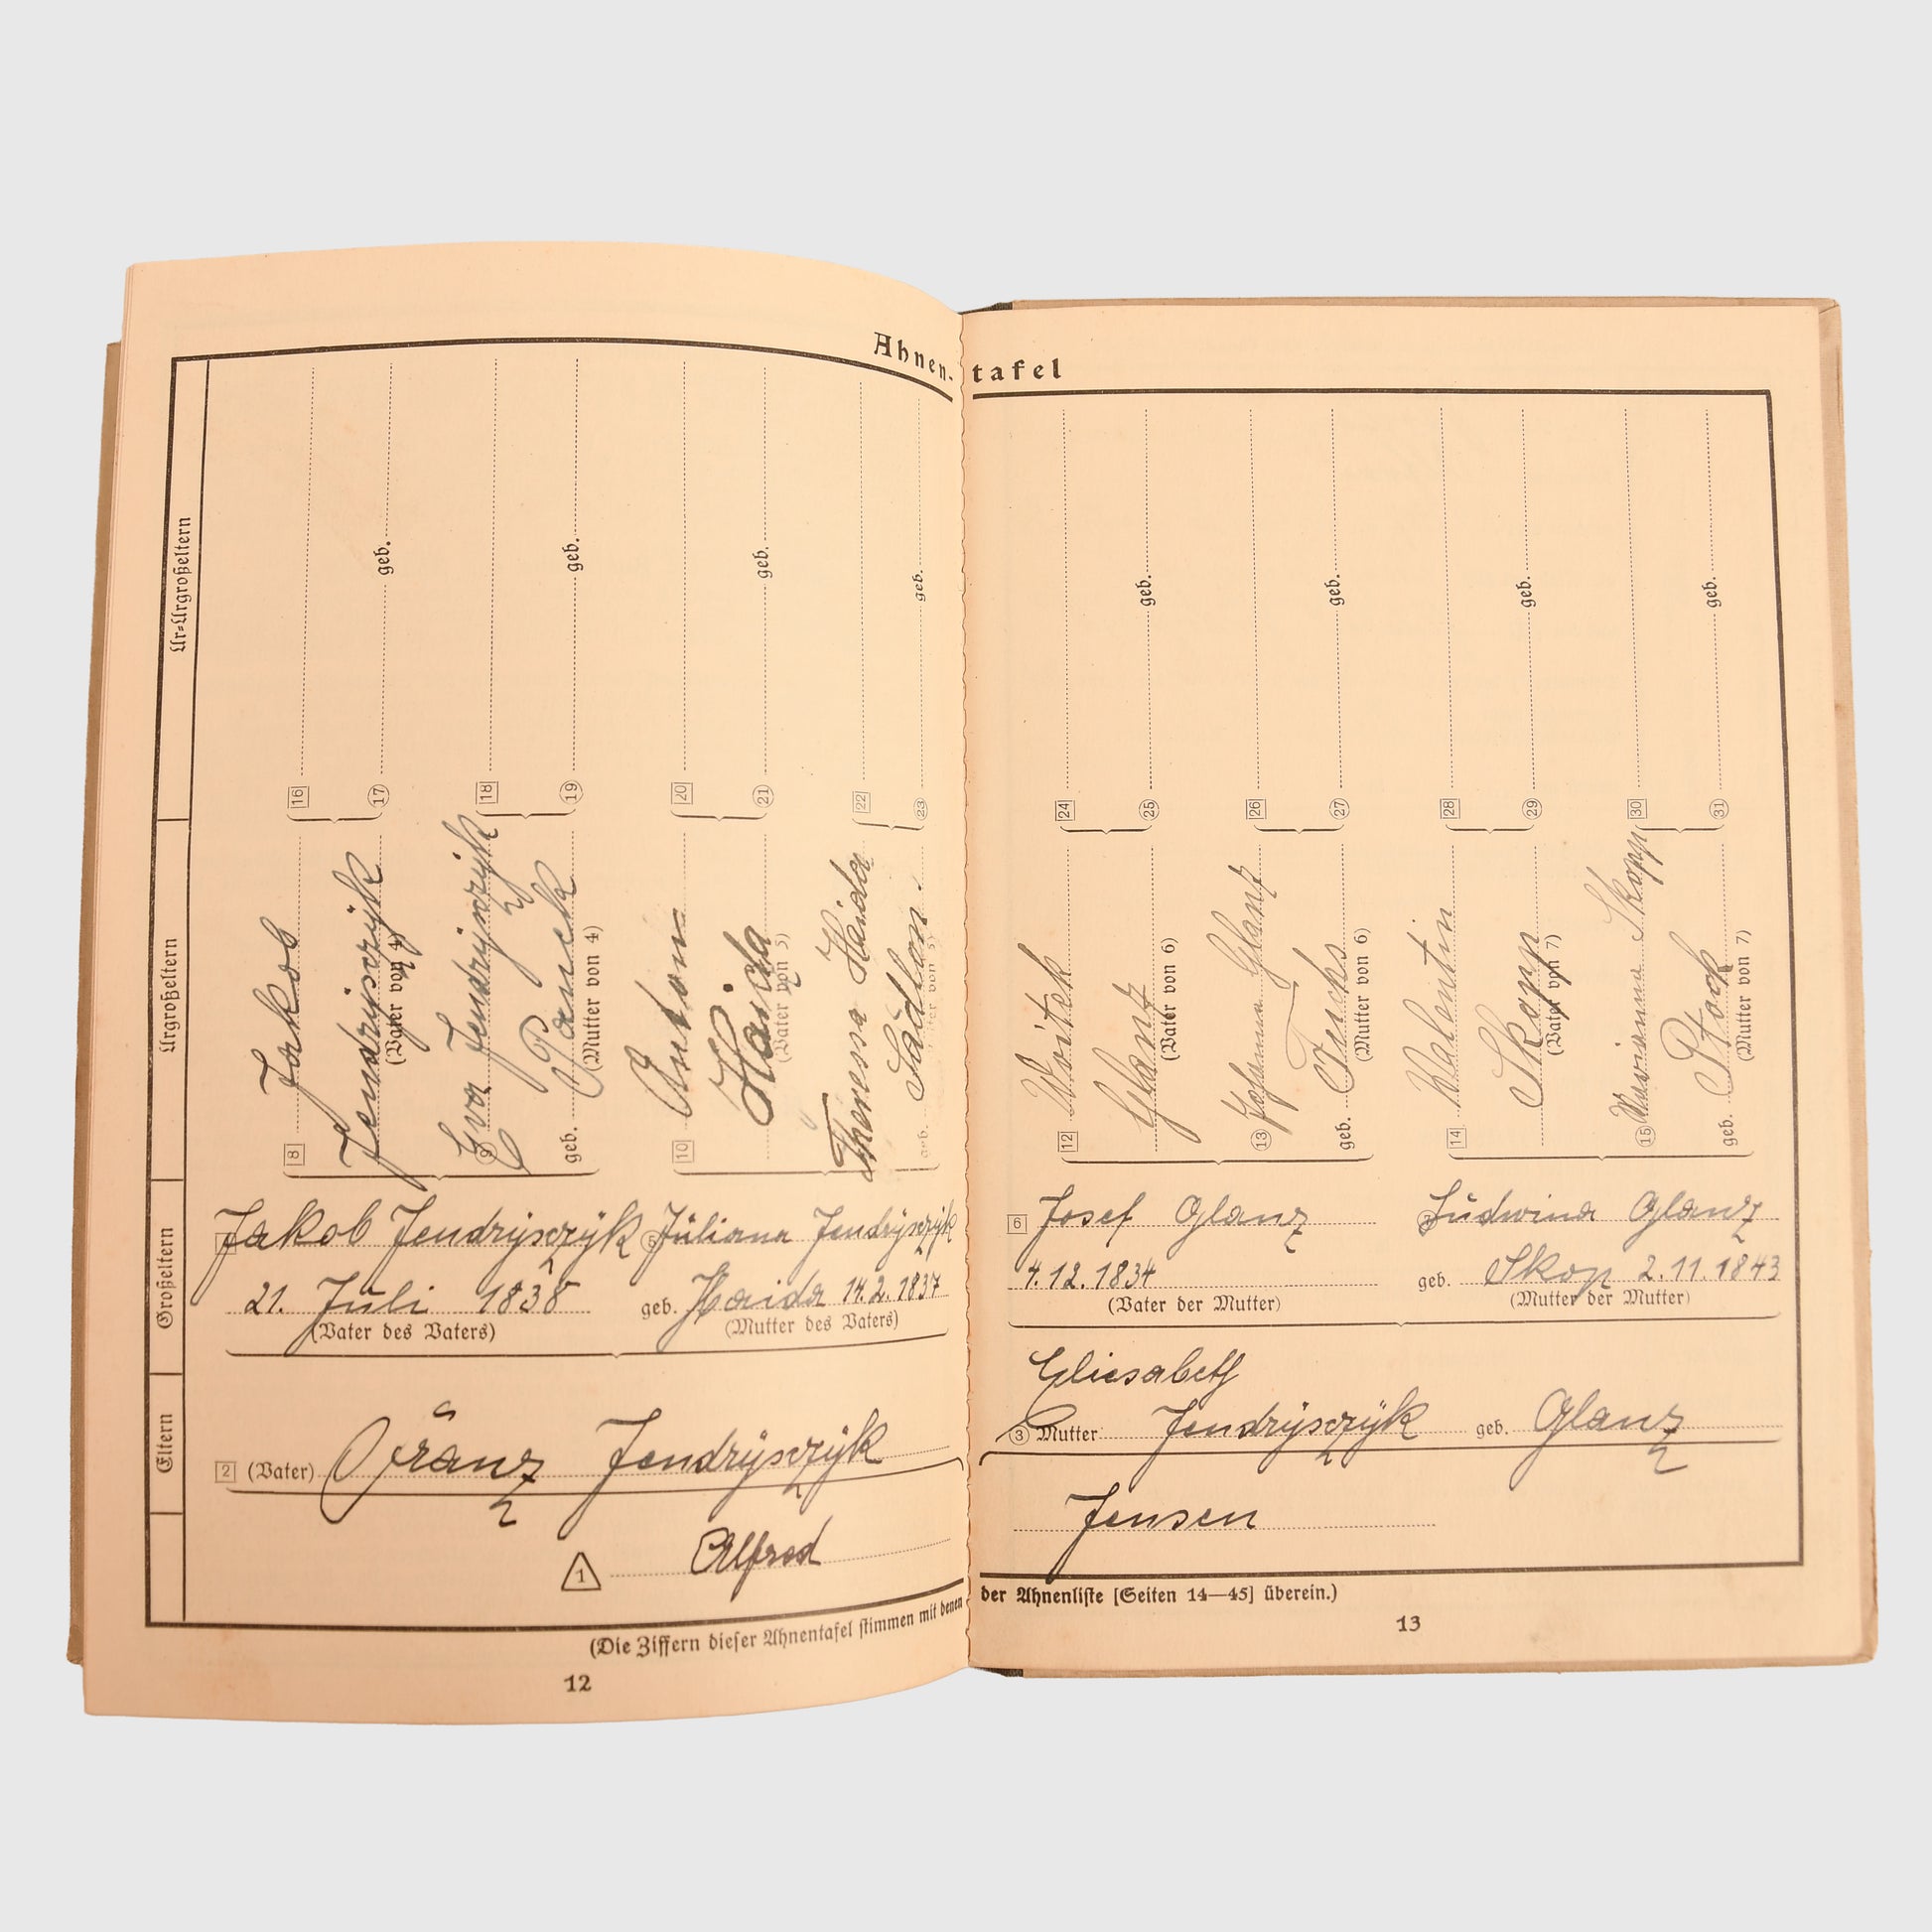 Ahnen-tafel
Ur=Urgroßeltern
16
17 geb.
18
19 geb.
20
21 geb.
22
23 geb.
24
25 geb.
26
27 geb.
28
29 geb.
30
31 geb.
Urgroßeltern
8 Jakob
Jendrÿsczÿk
(Vater von 4)
9 Eva Jendrÿsczÿk
geb. Panek
(Mutter von 4)
10 Anton
Haida
(Vater von 5)
Theressa Haida
geb.
12 Woitek
Glanz
(Vater von 6)
13 Johanna Glanz
geb. Fuchs
(Mutter von 6)
14 Valentin
Skopp
(Vater von 7)
15 Skopp
geb. Ptock
(Mutter von 7)
Großeltern
Jakob Jendrÿsczÿk
21. Juli 1838
(Vater des Vaters)
5 Juliana Jendrÿsczÿk
geb. Haida 14.2.1837
(Mutter des Vaters)
6 Josef Glanz
4.12.1834
(Vater der Mutter)
Ludwina Glanz
geb. Skop 2.11.1843
(Mutter der Mutter)
Eltern
2 (Vater) Franz Jendrÿsczÿk
Gliesabeth
3 Mutter Jendrÿsczÿk geb. Glanz
1 Alfred Jensen
(Die Ziffern dieser Ahnentafel stimmen mit denen der Ahnenliste [Seiten 14—45] überein.)
12
13